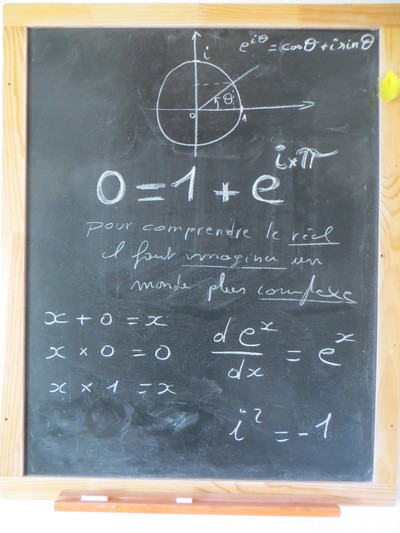 i
e^{iθ} = cosθ + i sinθ
θ
0 1
0 = 1 + e^{i×π}
pour comprendre le réel
il faut imaginer un
monde plus complexe
x + 0 = x
x × 0 = 0
x × 1 = x
d e^x / dx = e^x
i² = -1